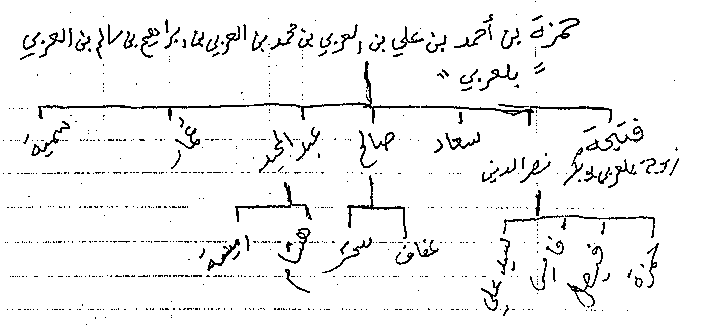 حمزة بن أحمد بن علي بن العربي بن محمد بن العربي بن إبراهيم بن سالم بن العربي
" بلعربي "
فتيحة نصر الدين سعاد صالح عبد الحميد عمار سمية
زوجة بلعربي بوبكر
حمزة فيصل فارس سيد علي عفاف سحر هشام أمينة